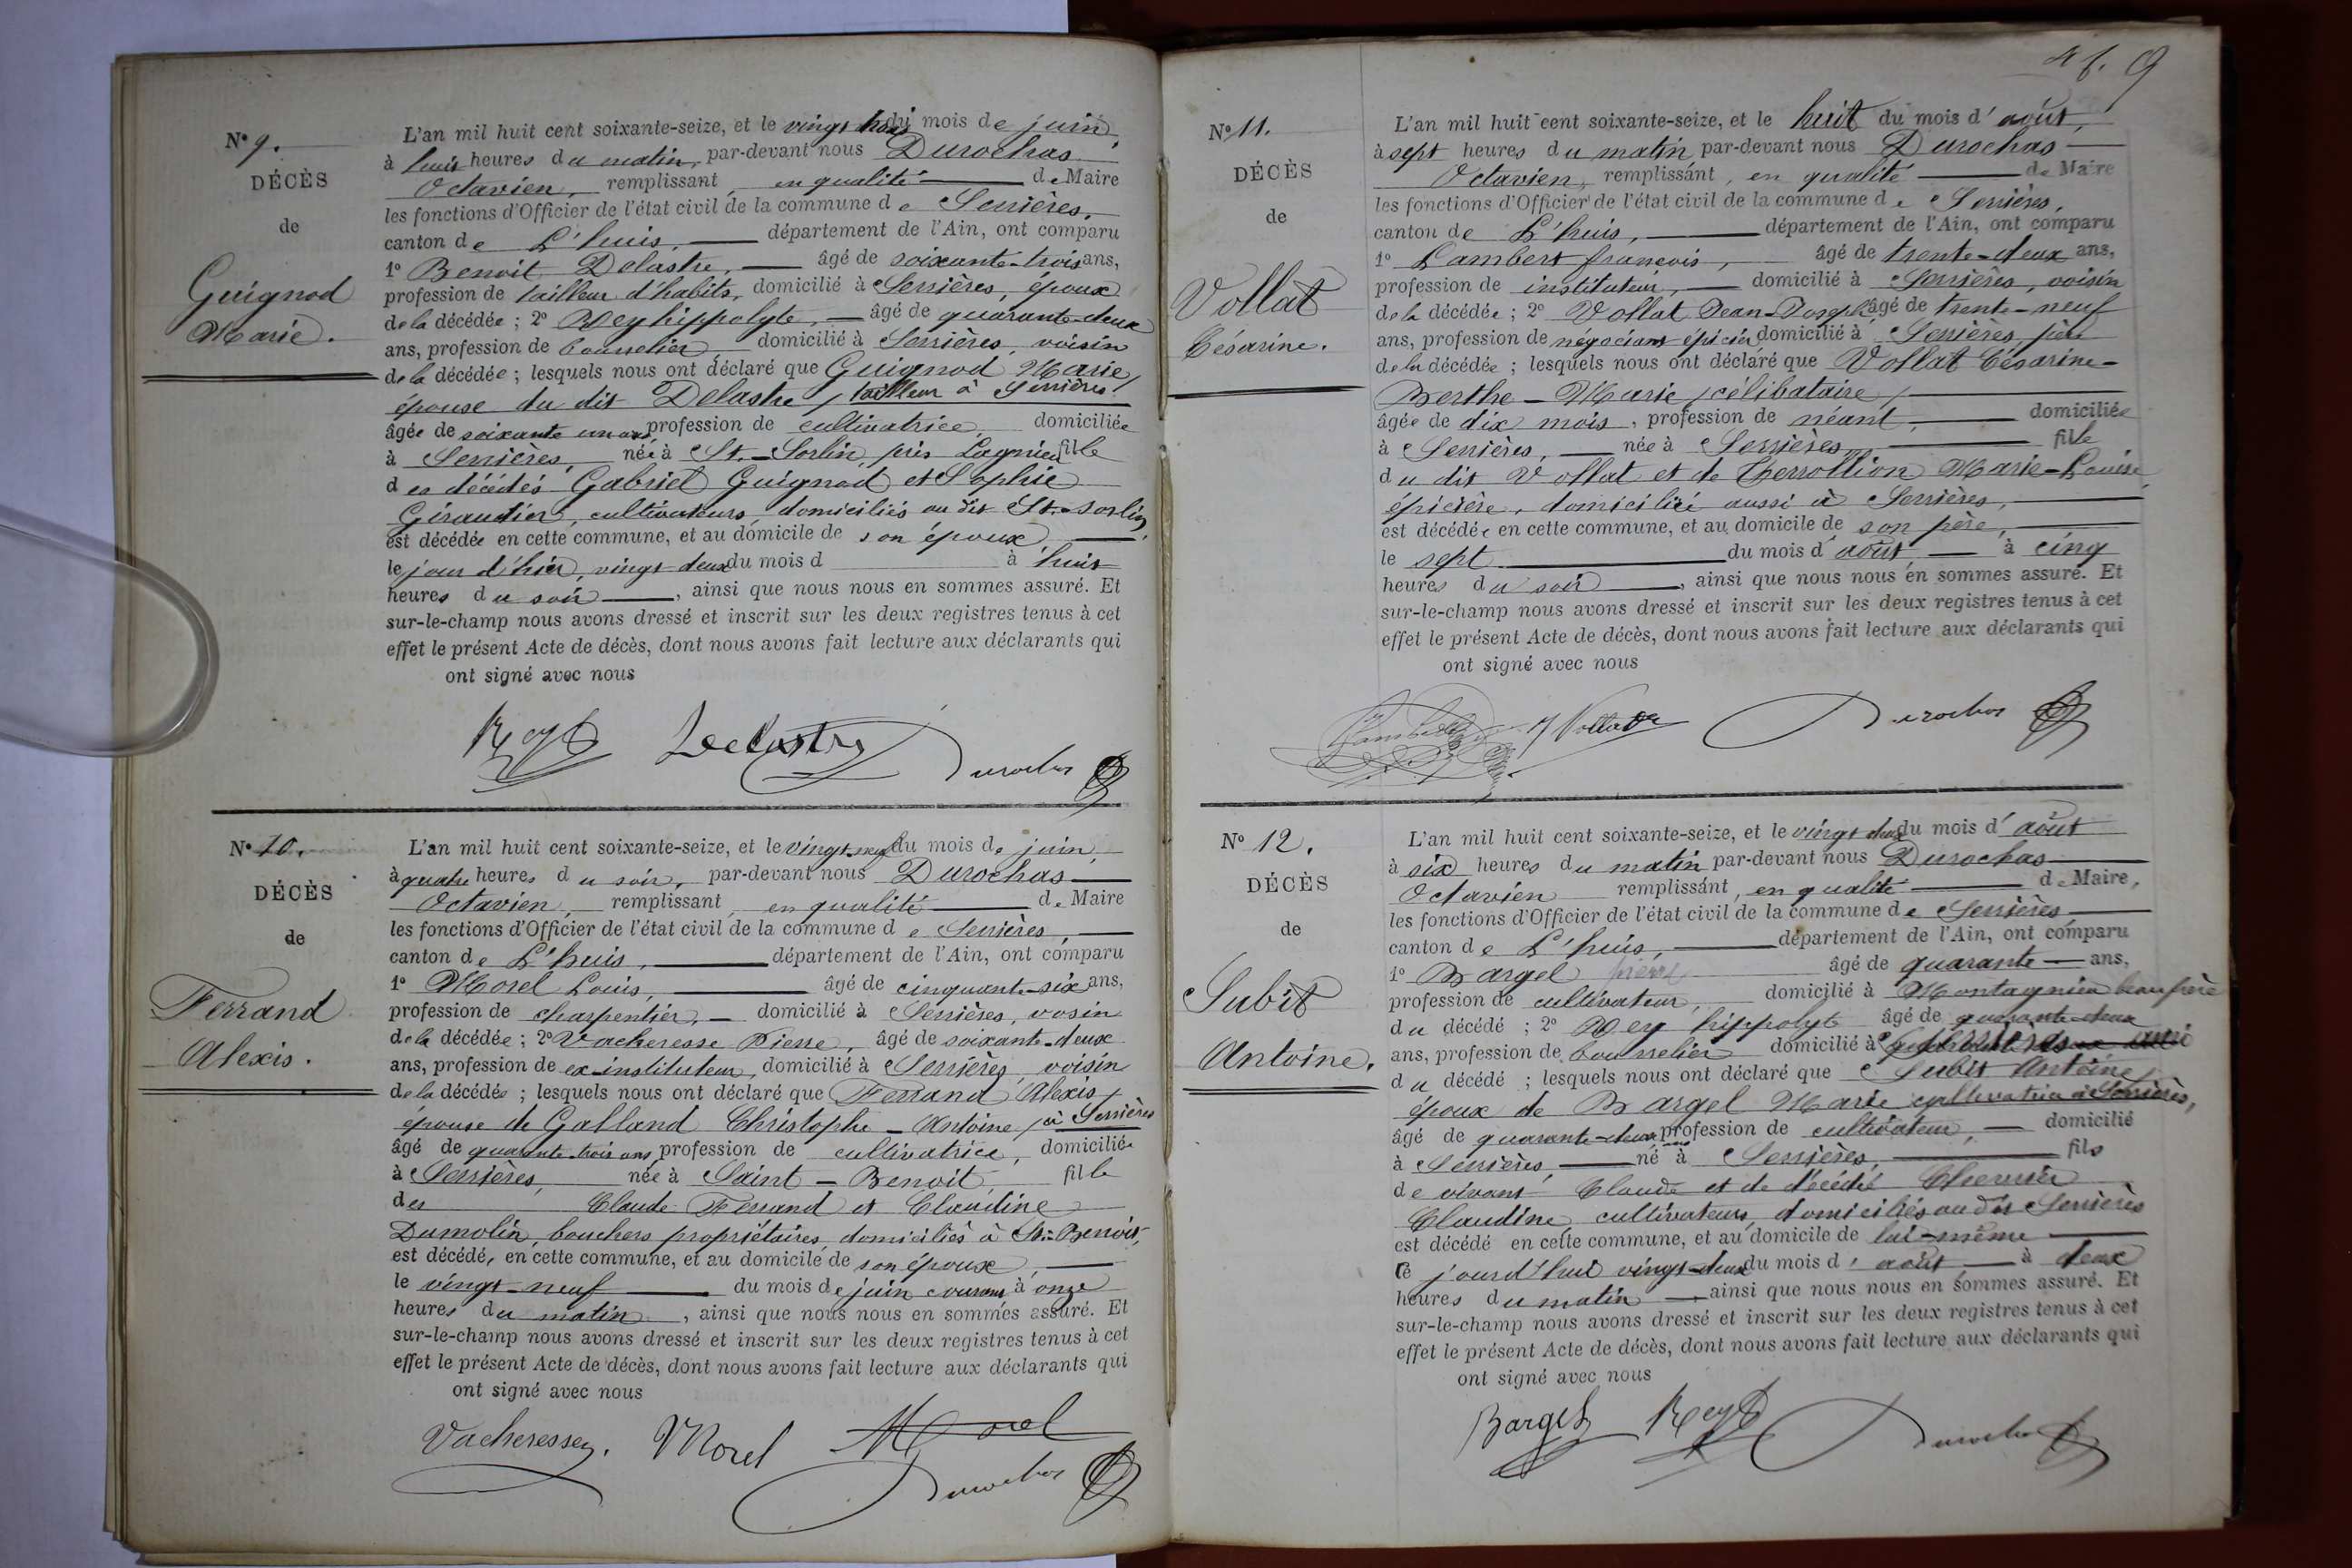 N° 9.
DÉCÈS
de
Guignod
Marie.
L'an mil huit cent soixante-seize, et le vingt trois du mois de juin,
à huit heures du matin, par-devant nous Durochas
Octavien, remplissant, en qualité de Maire
les fonctions d'Officier de l'état civil de la commune de Serrières,
canton de L'huis, département de l'Ain, ont comparu
1° Benoit Delastre, âgé de soixante-trois ans,
profession de tailleur d'habits, domicilié à Serrières, époux
de la décédée ; 2° Rey hippolyte, âgé de quarante-deux
ans, profession de bourrelier domicilié à Serrières, voisin
de la décédée ; lesquels nous ont déclaré que Guignod Marie,
épouse du dit Delastre, tailleur à Serrières
âgée de soixante un ans, profession de cultivatrice, domiciliée
à Serrières, née à St.-Sorlin, près Lagnieu fille
des décédés Gabriel Guignod et Sophie
Giraudier, cultivateurs, domiciliés au dit St.-Sorlin,
est décédée en cette commune, et au domicile de son époux
le jour d'hier, vingt deux du mois d à huit
heures du soir, ainsi que nous nous en sommes assuré. Et
sur-le-champ nous avons dressé et inscrit sur les deux registres tenus à cet
effet le présent Acte de décès, dont nous avons fait lecture aux déclarants qui
ont signé avec nous
Rey Delastre
Durochas
N° 10.
DÉCÈS
de
Ferrand
Alexis.
L'an mil huit cent soixante-seize, et le vingt-neuf du mois de juin,
à quatre heures du soir, par-devant nous Durochas
Octavien, remplissant, en qualité de Maire
les fonctions d'Officier de l'état civil de la commune de Serrières,
canton de L'huis, département de l'Ain, ont comparu
1° Morel Louis, âgé de cinquante-six ans,
profession de charpentier, domicilié à Serrières, vosin
de la décédée ; 2° Vacheresse Pierre, âgé de soixante-deux
ans, profession de ex-instituteur, domicilié à Serrières, voisin
de la décédée ; lesquels nous ont déclaré que Ferrand Alexis,
épouse de Galland Christophe-Antoine, à Serrières
âgé de quarante-trois ans, profession de cultivatrice, domiciliée
à Serrières, née à Saint-Benoit fille
des Claude Ferrand et Claudine
Dumolin, bouchers propriétaires domiciliés à St.-Benoit,
est décédée, en cette commune, et au domicile de son époux,
le vingt-neuf du mois de juin courant à onze
heures du matin, ainsi que nous nous en sommes assuré. Et
sur-le-champ nous avons dressé et inscrit sur les deux registres tenus à cet
effet le présent Acte de décès, dont nous avons fait lecture aux déclarants qui
ont signé avec nous
Vacheresse. Morel Morel
Durochas
9
N° 11.
DÉCÈS
de
Vollat
Césarine.
L'an mil huit cent soixante-seize, et le huit du mois d'août,
à sept heures du matin par-devant nous Durochas
Octavien, remplissant, en qualité de Maire
les fonctions d'Officier de l'état civil de la commune de Serrières,
canton de L'huis, département de l'Ain, ont comparu
1° Lambert françois, âgé de trente-deux ans,
profession de instituteur, domicilié à Serrières, voisin
de la décédée ; 2° Vollat Jean-Joseph, âgé de trente-neuf
ans, profession de négociant épicier domicilié à Serrières, père
de la décédée ; lesquels nous ont déclaré que Vollat Césarine-
Berthe-Marie, célibataire,
âgée de dix mois, profession de néant, domiciliée
à Serrières, née à Serrières, fille
du dit Vollat et de Therrollion Marie-Louise,
épicière, domiciliée aussi à Serrières,
est décédée en cette commune, et au domicile de son père,
le sept du mois d'août à cinq
heures du soir, ainsi que nous nous en sommes assuré. Et
sur-le-champ nous avons dressé et inscrit sur les deux registres tenus à cet
effet le présent Acte de décès, dont nous avons fait lecture aux déclarants qui
ont signé avec nous
Lambert Vollat Durochas
N° 12.
DÉCÈS
de
Subit
Antoine.
L'an mil huit cent soixante-seize, et le vingt deux du mois d'août
à six heures du matin par-devant nous Durochas
Octavien remplissant, en qualité de Maire,
les fonctions d'Officier de l'état civil de la commune de Serrières,
canton de L'huis, département de l'Ain, ont comparu
1° Bargel pierre âgé de quarante ans,
profession de cultivateur, domicilié à Montagnieu beau frère
du décédé ; 2° Rey hippolyte âgé de quarante-deux
ans, profession de bourrelier domicilié à Serrières ami
du décédé ; lesquels nous ont déclaré que Subit Antoine,
époux de Bargel Marie cultivatrice à Serrières,
âgé de quarante-deux ans profession de cultivateur, domicilié
à Serrières, né à Serrières, fils
de vivant Claude et de décédé Chevrier
Claudine, cultivateurs, domiciliés au dit Serrières
est décédé en cette commune, et au domicile de lui-même
Ce jourd'hui vingt-deux du mois d'août à deux
heures du matin ainsi que nous nous en sommes assuré. Et
sur-le-champ nous avons dressé et inscrit sur les deux registres tenus à cet
effet le présent Acte de décès, dont nous avons fait lecture aux déclarants qui
ont signé avec nous
Bargel Rey Durochas